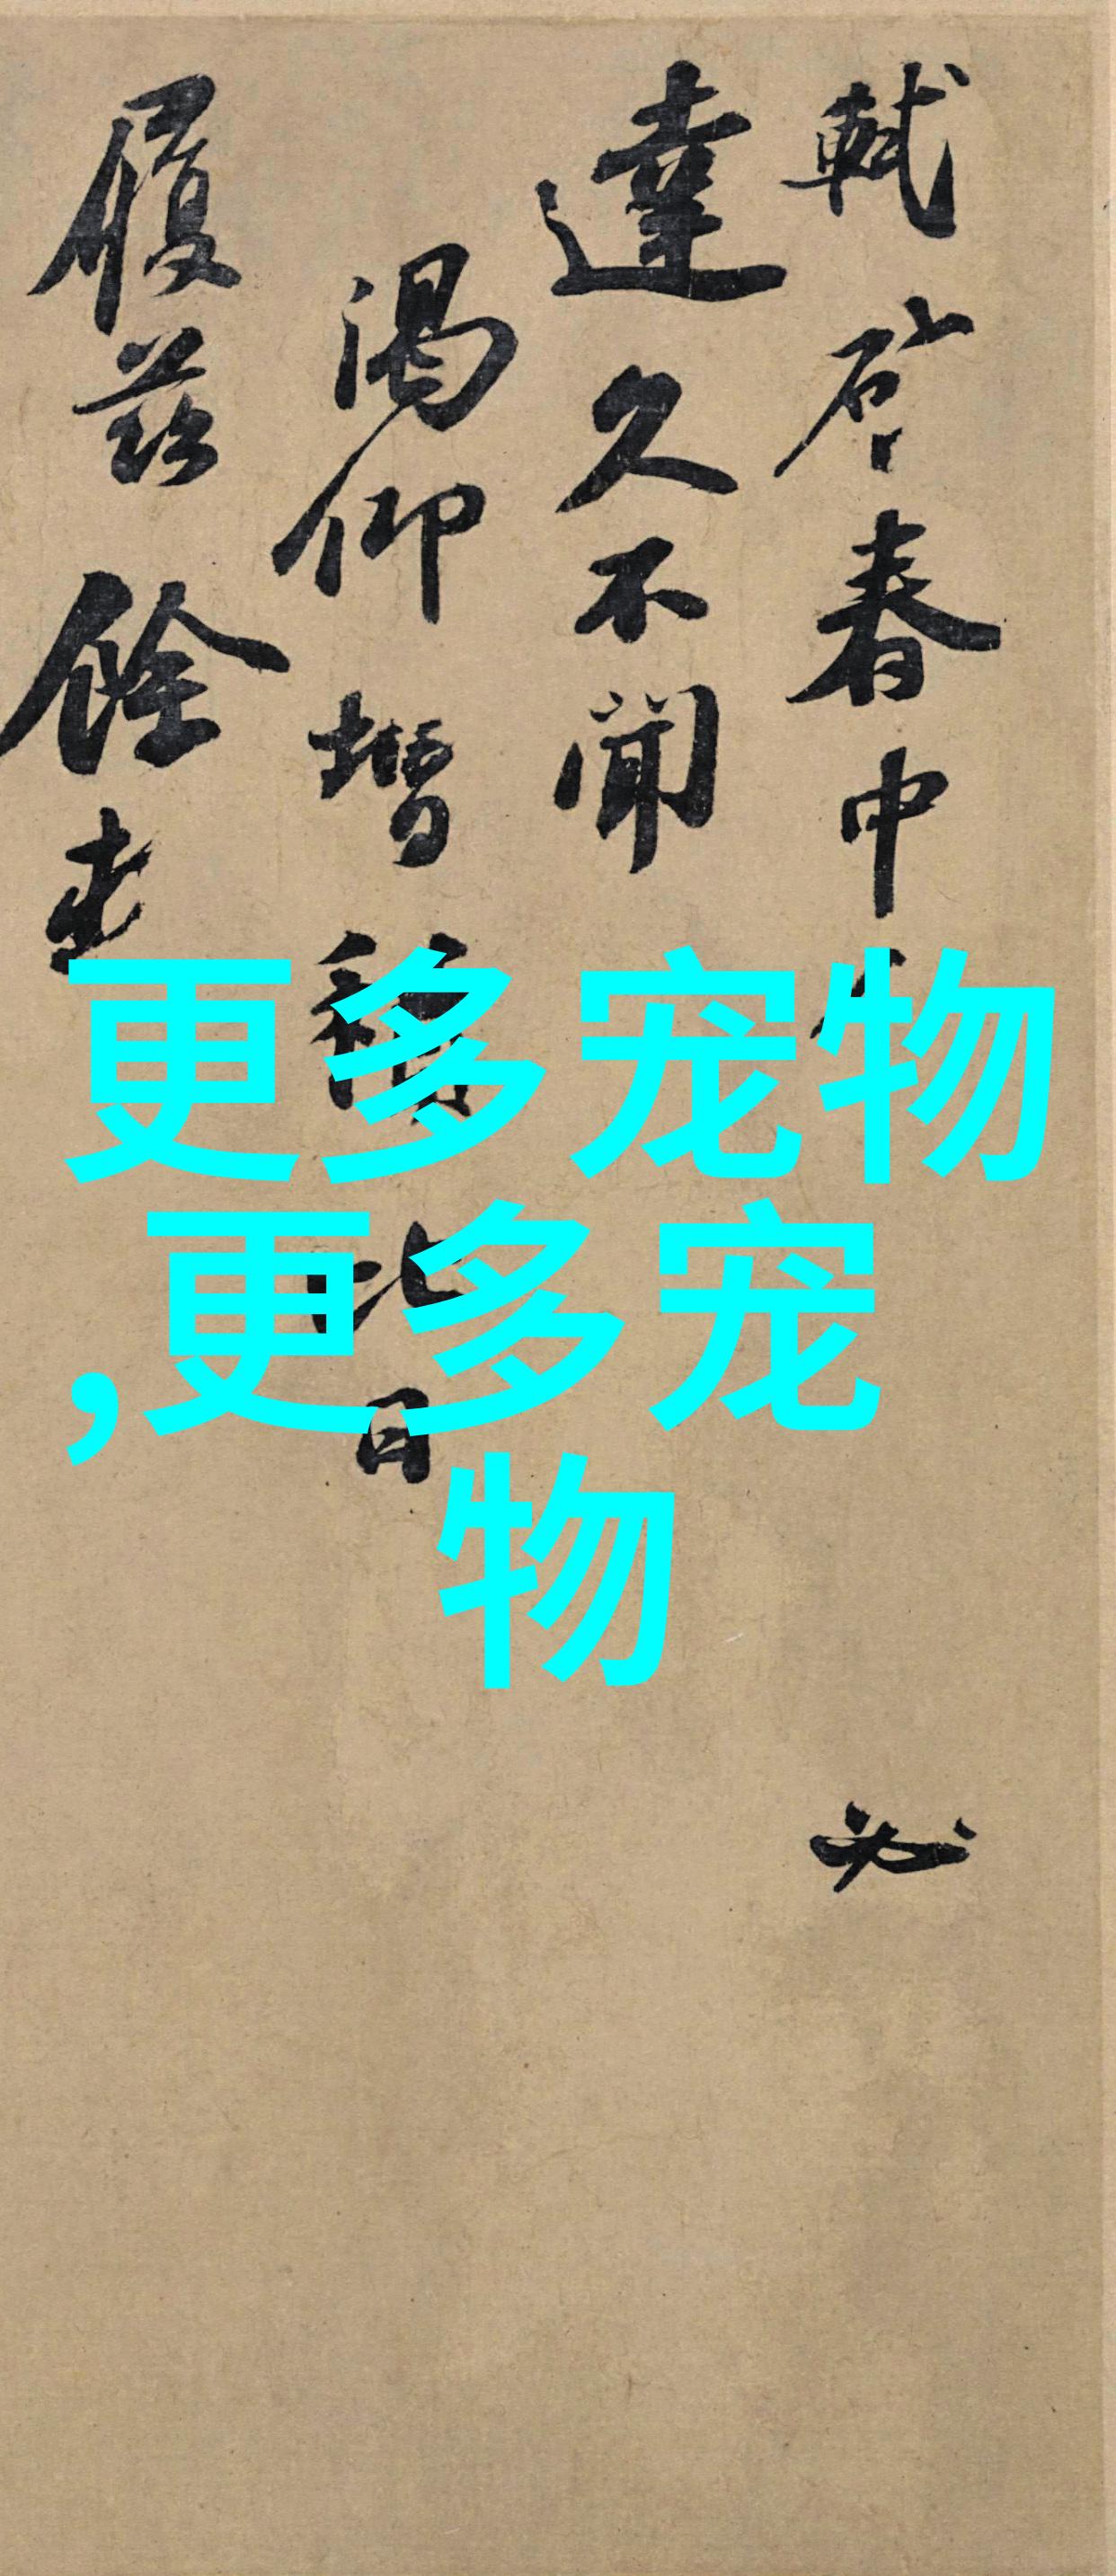 軾啓春中
必
達久不聞
渴仰增
比日
履茲餘
更多宠物
,更多宠
物